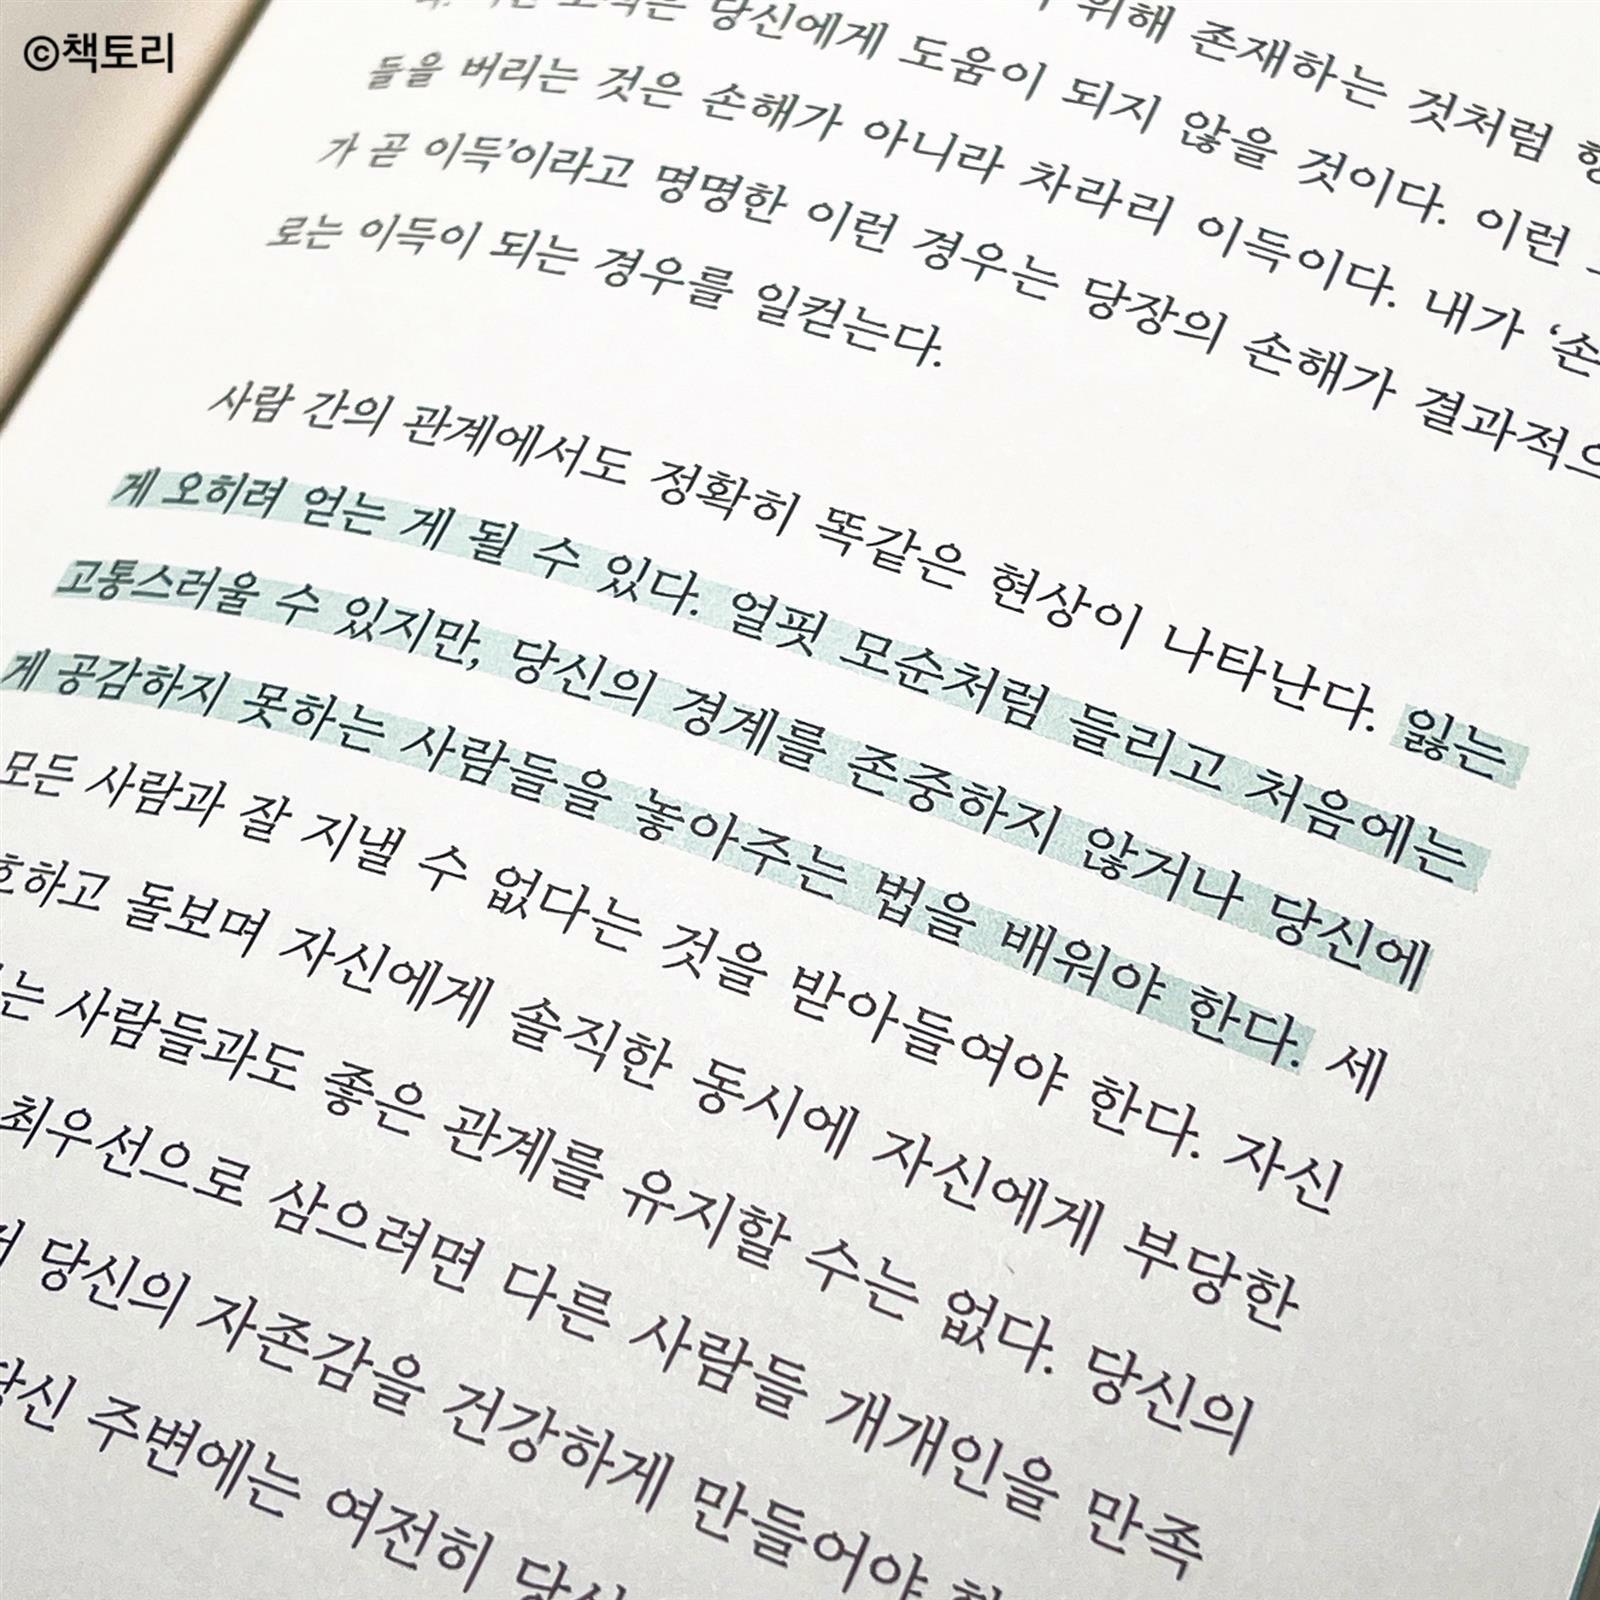 ©책토리
위해 존재하는 것처럼
당신에게 도움이 되지 않을 것이다. 이런
들을 버리는 것은 손해가 아니라 차라리 이득이다. 내가 ‘손
가 곧 이득’이라고 명명한 이런 경우는 당장의 손해가 결과적으
로는 이득이 되는 경우를 일컫는다.
사람 간의 관계에서도 정확히 똑같은 현상이 나타난다. 잃는
게 오히려 얻는 게 될 수 있다. 얼핏 모순처럼 들리고 처음에는
고통스러울 수 있지만, 당신의 경계를 존중하지 않거나 당신에
게 공감하지 못하는 사람들을 놓아주는 법을 배워야 한다. 세
모든 사람과 잘 지낼 수 없다는 것을 받아들여야 한다. 자신
호하고 돌보며 자신에게 솔직한 동시에 자신에게 부당한
는 사람들과도 좋은 관계를 유지할 수는 없다. 당신의
최우선으로 삼으려면 다른 사람들 개개인을 만족
당신의 자존감을 건강하게 만들어야
당신 주변에는 여전히